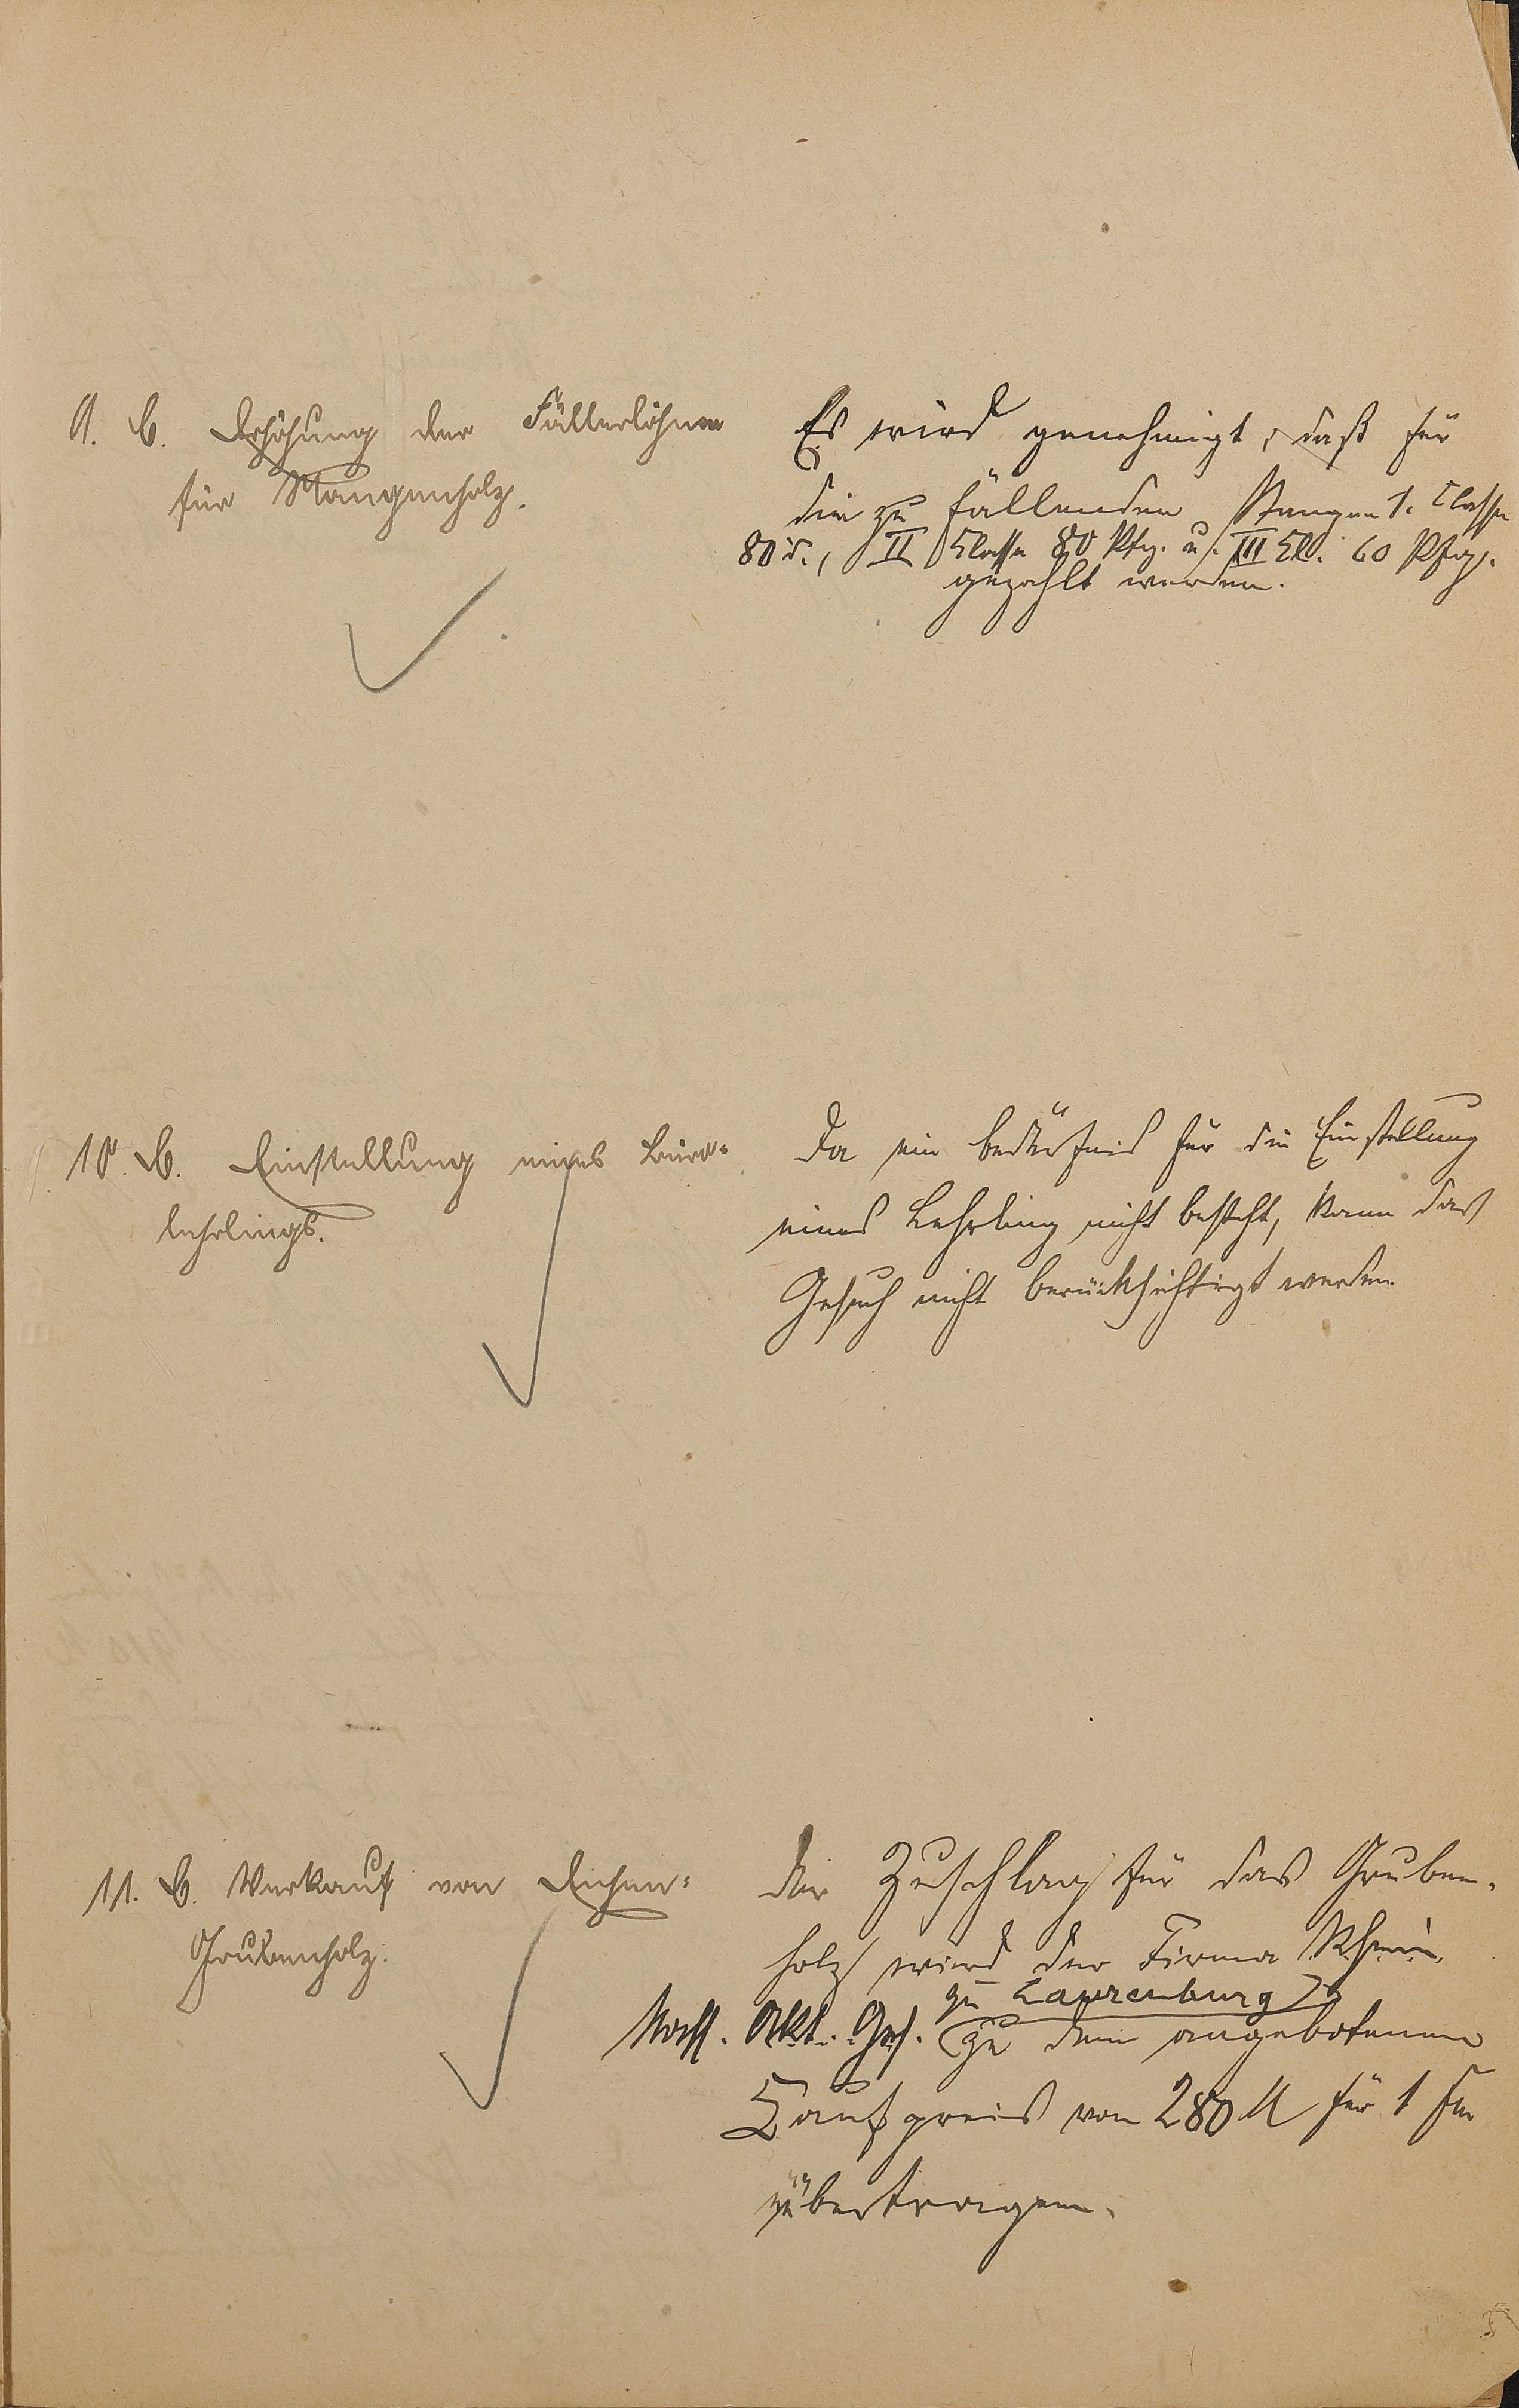 9. b. Erhöhung der Fällerlöhne
für Stangenholz.
Es wird genehmigt, daß für
die zu fällenden Stangen 1. Classe
80 d., II Classe 80 Pfg. u. III Cl. 60 Pfg.
gezahlt werden.
10. b. Einstellung eines Büro-
lehrlings.
Da ein Bedürfnis für die Einstellung
eines Lehrling nicht besteht, kann das
Gesuch nicht berücksichtigt werden.
11. b. Verkauf von Eichen-
Grubenholz.
Der Zuschlag für das Gruben-
holz wird der Firma Rhein.
zu Laurenburg
Nass. Akt. Ges. zu dem angebotenen
Kaufpreis von 280 M für 1 fm
übertragen.